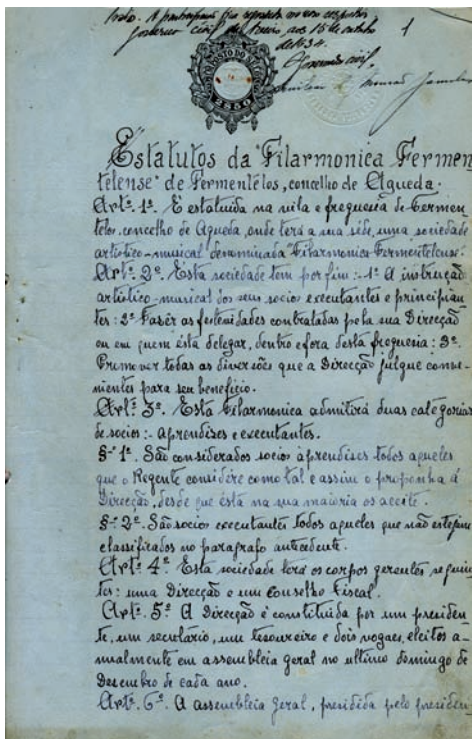 Visto. A participação fica registada no livro respectivo
Governo civil de Aveiro, aos 15 de outubro
de 1934.
O Governador civil,
IMPOSTO DO SELO
Estatutos da "Filarmonica Fermen
telense" de Fermentelos, concelho de Agueda.
Artº. 1º. É estatuida na vila e freguesia de Fermen
telos, concelho de Agueda, onde terá a sua séde, uma sociedade
artistico-musical denominada "Filarmonica-Fermentelense.
Artº. 2º. Esta sociedade tem por fim:- 1º A instrução
artistico-musical dos seus socios executantes e principian
tes: 2º Fazêr as festividades contratadas pela sua Direcção
ou em quem ésta delegar, dentro e fora desta freguesia: 3º.
Promover todas as diversões que a Direcção julgue conve-
nientes para seu beneficio.
Artº. 3º. Esta Filarmonica admitirá duas categorias
de socios:- aprendises e executantes.
§- 1º. São considerados socios aprendises todos aqueles
que o Regente considére como tal e assim o proponha á
Direcção, desde que ésta na sua maioria os aceite.
§- 2º. São socios executantes todos aqueles que não estejam
classificados no paragrafo antecedente.
Artº. 4º. Esta sociedade terá os corpos gerentes seguin
tes: uma Direcção e um Conselho Fiscal.
Artº. 5º. A Direcção é constituida por um presiden
te, um secretário, um tesoureiro e dois vogaes, eleitos a-
nualmente em assembleia geral no ultimo domingo de
Dezembro de cada ano.
Artº. 6º. A assembleia geral, presidida pelo presiden